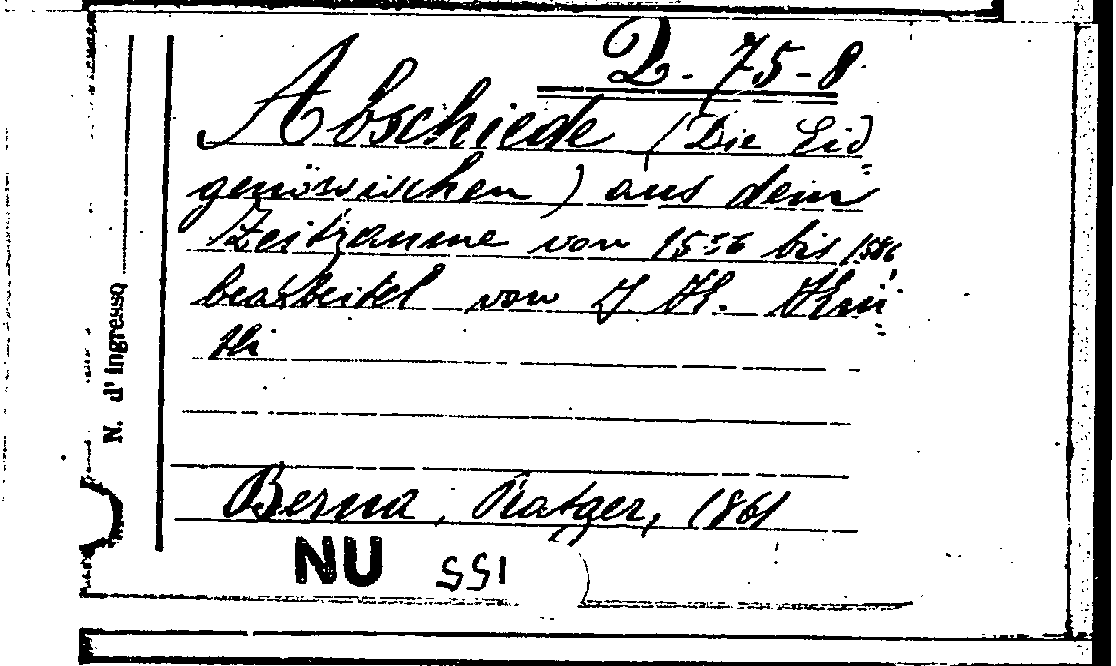 2.-75-8
Abschiede (Die Eid
genössischen) aus dem
Zeitraume von 1556 bis 1586
bearbeitet von J. K. Krü
tli
Berna, Ratzer, 1861
NU 551
N. d' ingresso